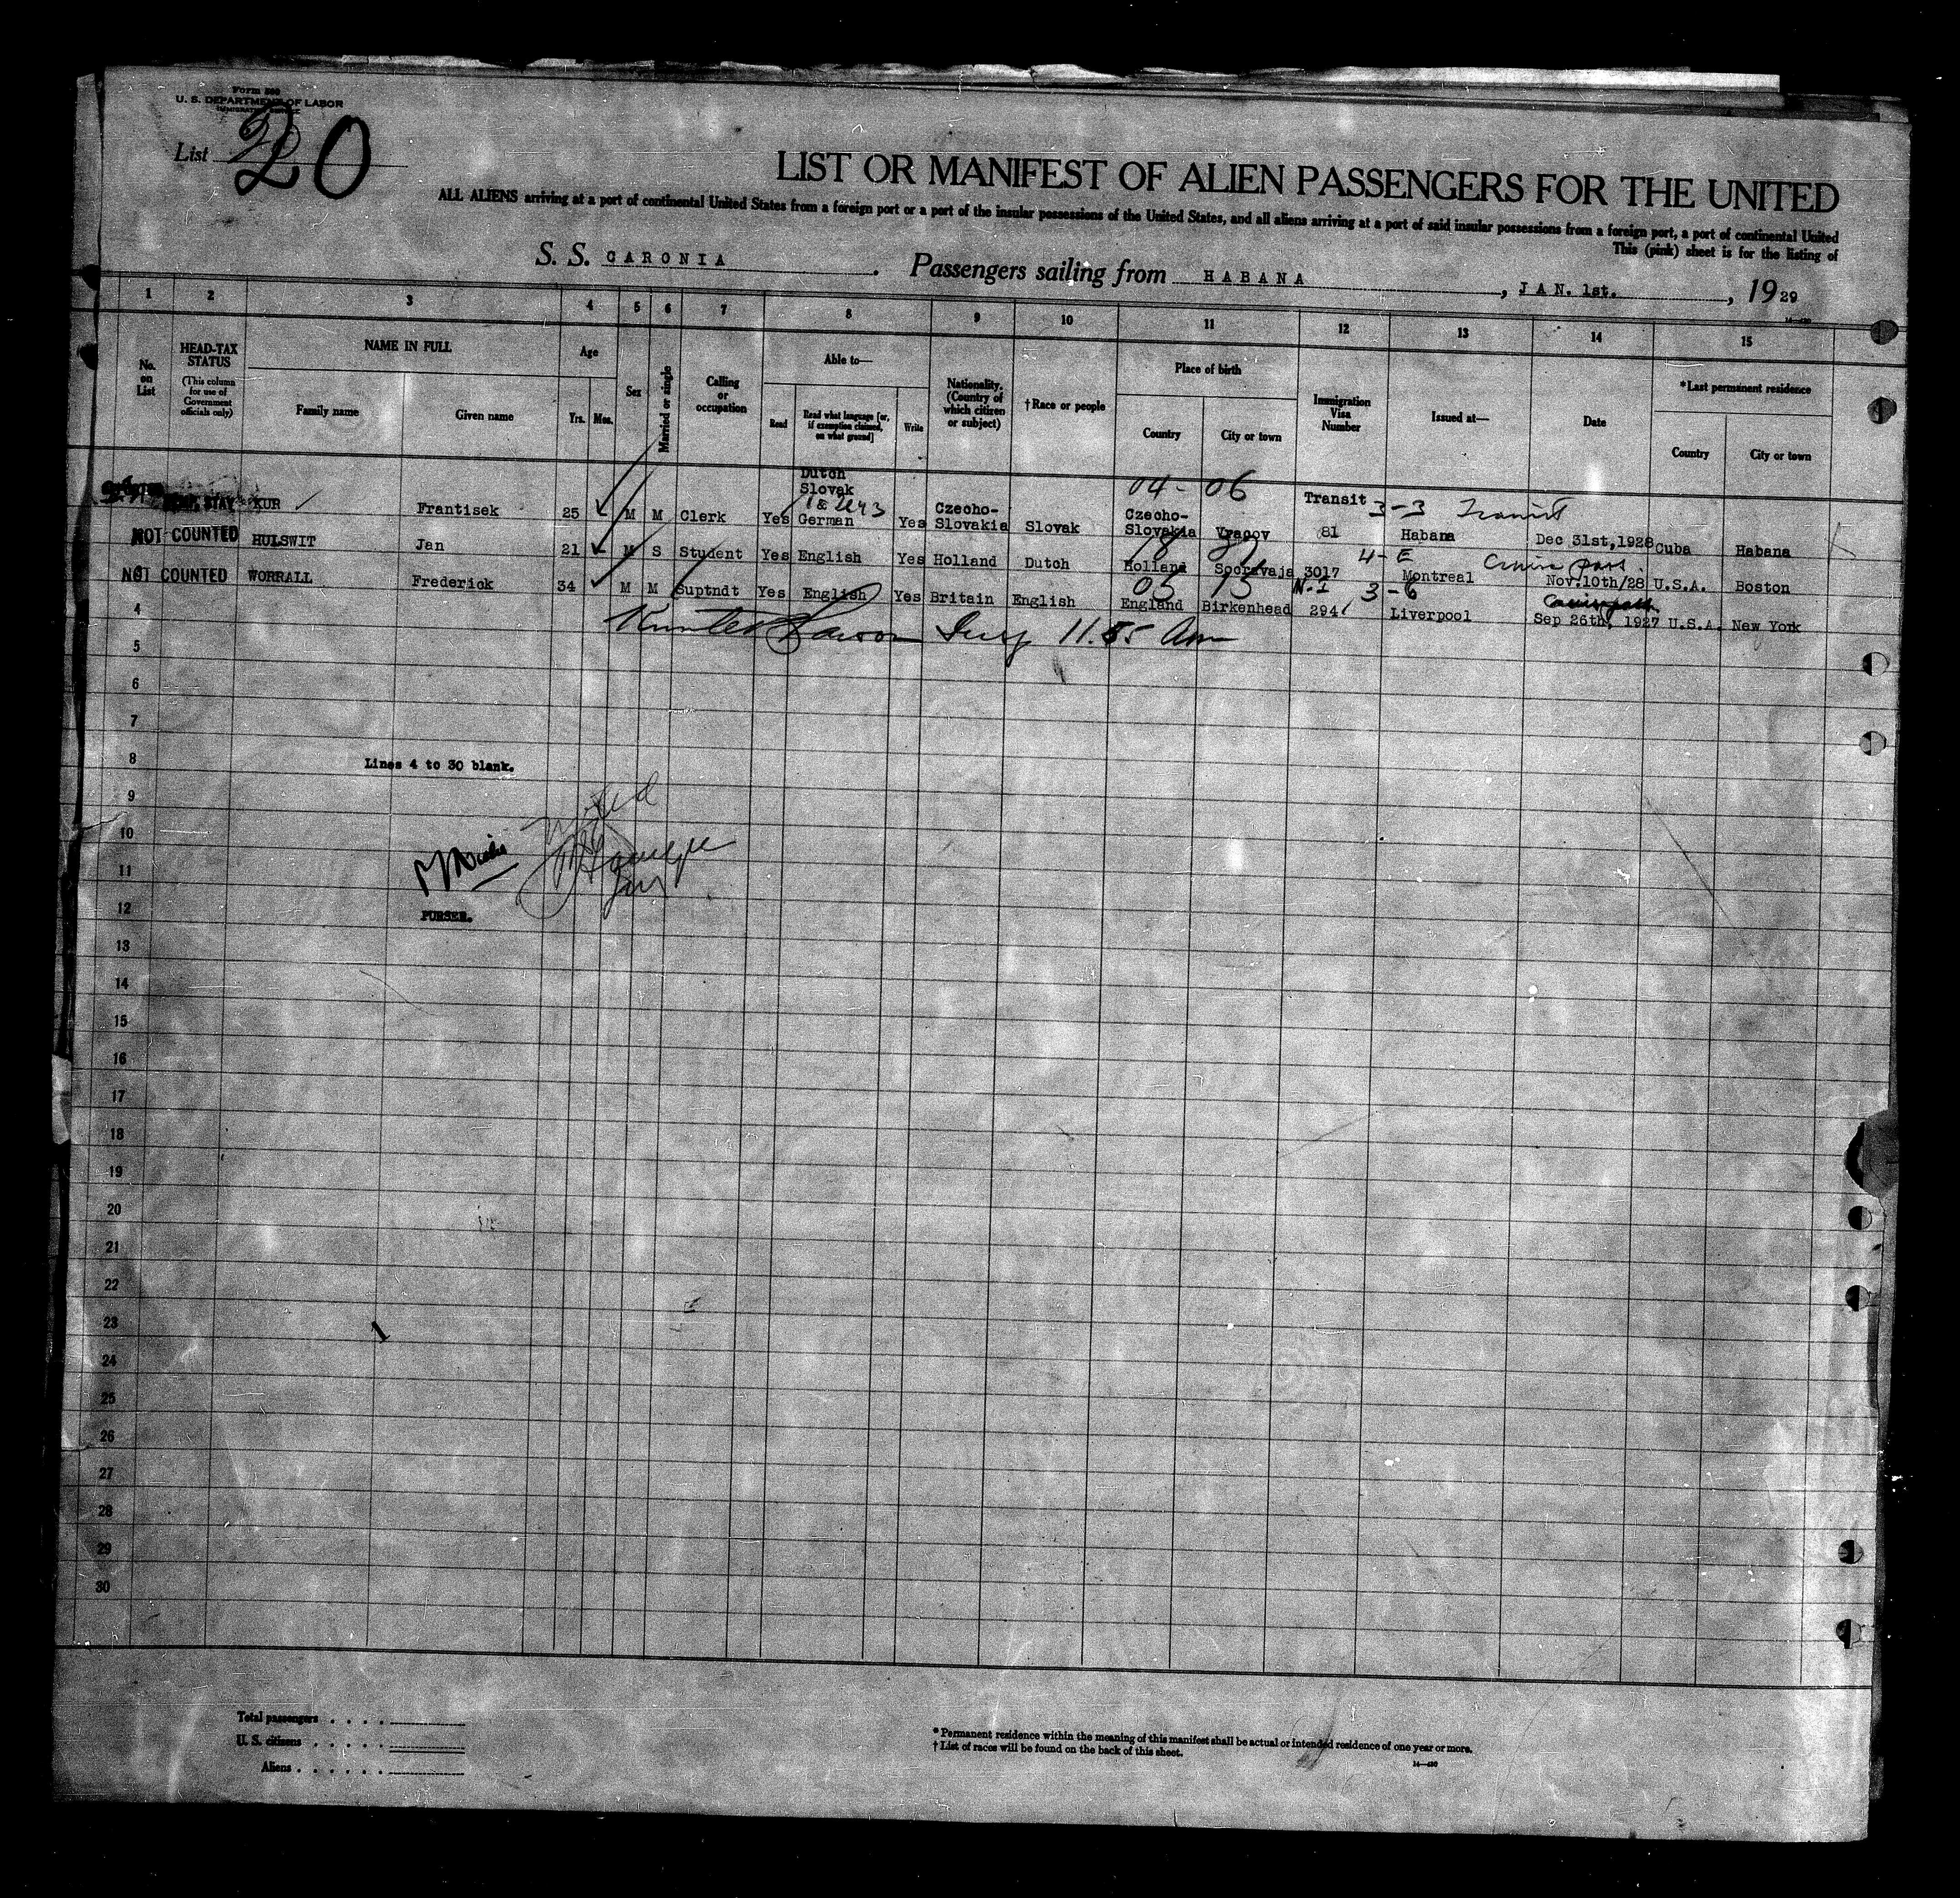 Form 500
U. S. DEPARTMENT OF LABOR
IMMIGRATION SERVICE
List 20
LIST OR MANIFEST OF ALIEN PASSENGERS FOR THE UNITED
ALL ALIENS arriving at a port of continental United States from a foreign port or a port of the insular possessions of the United States, and all aliens arriving at a port of said insular possessions from a foreign port, a port of continental United
This (pink) sheet is for the listing of
S. S. CARONIA . Passengers sailing from HABANA , JAN. 1st. , 1929
1 2 3 4 5 6 7 8 9 10 11 12 13 14 15
No. on List
HEAD-TAX STATUS
(This column for use of Government officials only)
NAME IN FULL
Family name
Given name
Age
Yrs. Mos.
Sex
Married or single
Calling or occupation
Able to—
Read
Read what language [or, if exemption claimed, on what ground]
Write
Nationality. (Country of which citizen or subject)
†Race or people
Place of birth
Country
City or town
Immigration Visa Number
Issued at—
Date
*Last permanent residence
Country
City or town
Dutch
Slovak
04 - 06
Transit 3-3 Transit
STAY KUR Frantisek 25 M M Clerk Yes German Yes Czecho-Slovakia Slovak Czecho-Slovakia Vracov 81 Habana Dec 31st,1928 Cuba Habana
4-E Cruise pass.
NOT COUNTED HULSWIT Jan 21 M S Student Yes English Yes Holland Dutch Holland 3017 Montreal Nov.10th/28 U.S.A. Boston
05 13 N.I 3-6
NOT COUNTED WORRALL Frederick 34 M M Suptndt Yes English Yes Britain English England Birkenhead 294 Liverpool Sep 26th, 1927 U.S.A. New York
4
11.55 Am
5
6
7
8
Lines 4 to 30 blank.
9
10
11
12
PURSER.
13
14
15
16
17
18
19
20
21
22
23
24
25
26
27
28
29
30
Total passengers
U. S. citizens
Aliens
* Permanent residence within the meaning of this manifest shall be actual or intended residence of one year or more.
† List of races will be found on the back of this sheet.